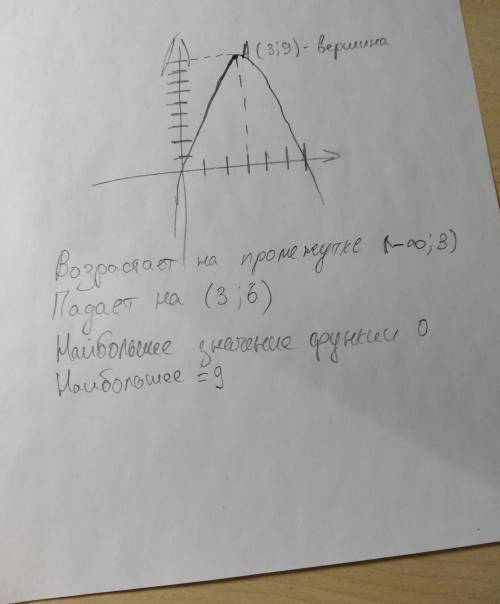 A (3;9) - вершина
Возрастает на промежутке (-∞;3)
Падает на (3;6)
Наибольшее значение функции 0
Наибольшее = 9